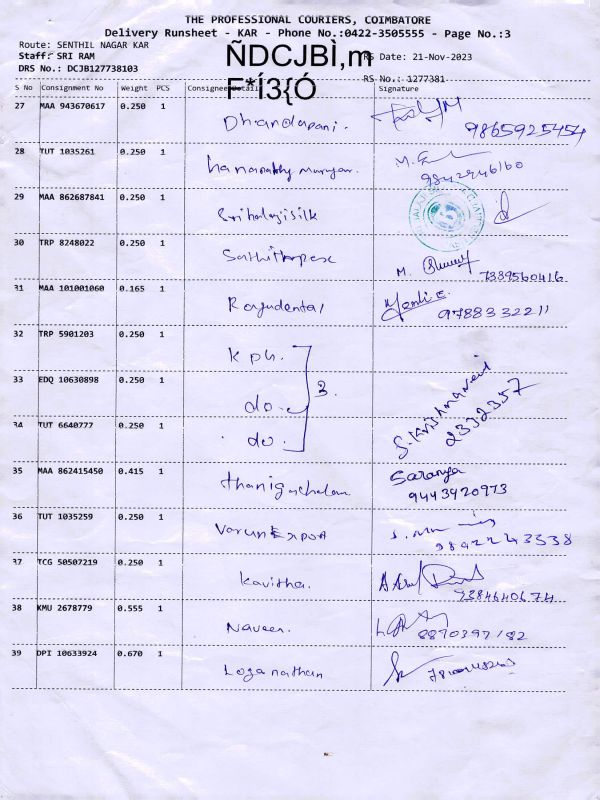 THE PROFESSIONAL COURIERS, COIMBATORE
Delivery Runsheet - KAR - Phone No.:0422-3505555 - Page No.:3
Route: SENTHIL NAGAR KAR
Staff: SRI RAM
RS Date: 21-Nov-2023
DRS No.: DCJB127738103
ÑDCJBÌ,m
F*Í3{Ó
RS No.: 1277381
S No Consignment No Weight PCS Consignee Detail Signature
27 MAA 943670617 0.250 1 Dhandapani. 9865925454
28 TUT 1035261 0.250 1 9842946160
29 MAA 862687841 0.250 1 Sribalajisilk
30 TRP 8248022 0.250 1 M. 7339560416
31 MAA 101001060 0.165 1 Rayudental 9788332211
32 TRP 5901203 0.250 1 K ph.
33 EDQ 10630898 0.250 1 do. 3. S. Krishnaveni 2332357
34 TUT 6640777 0.250 1 do.
35 MAA 862415450 0.415 1 thanigachalam Saranya 9443920973
36 TUT 1035259 0.250 1 Varun Export 9892243538
37 TCG 50507219 0.250 1 Kavitha. 9384640674
38 KMU 2678779 0.555 1 Naveen. 8870397182
39 DPI 10633924 0.670 1 Loganathan